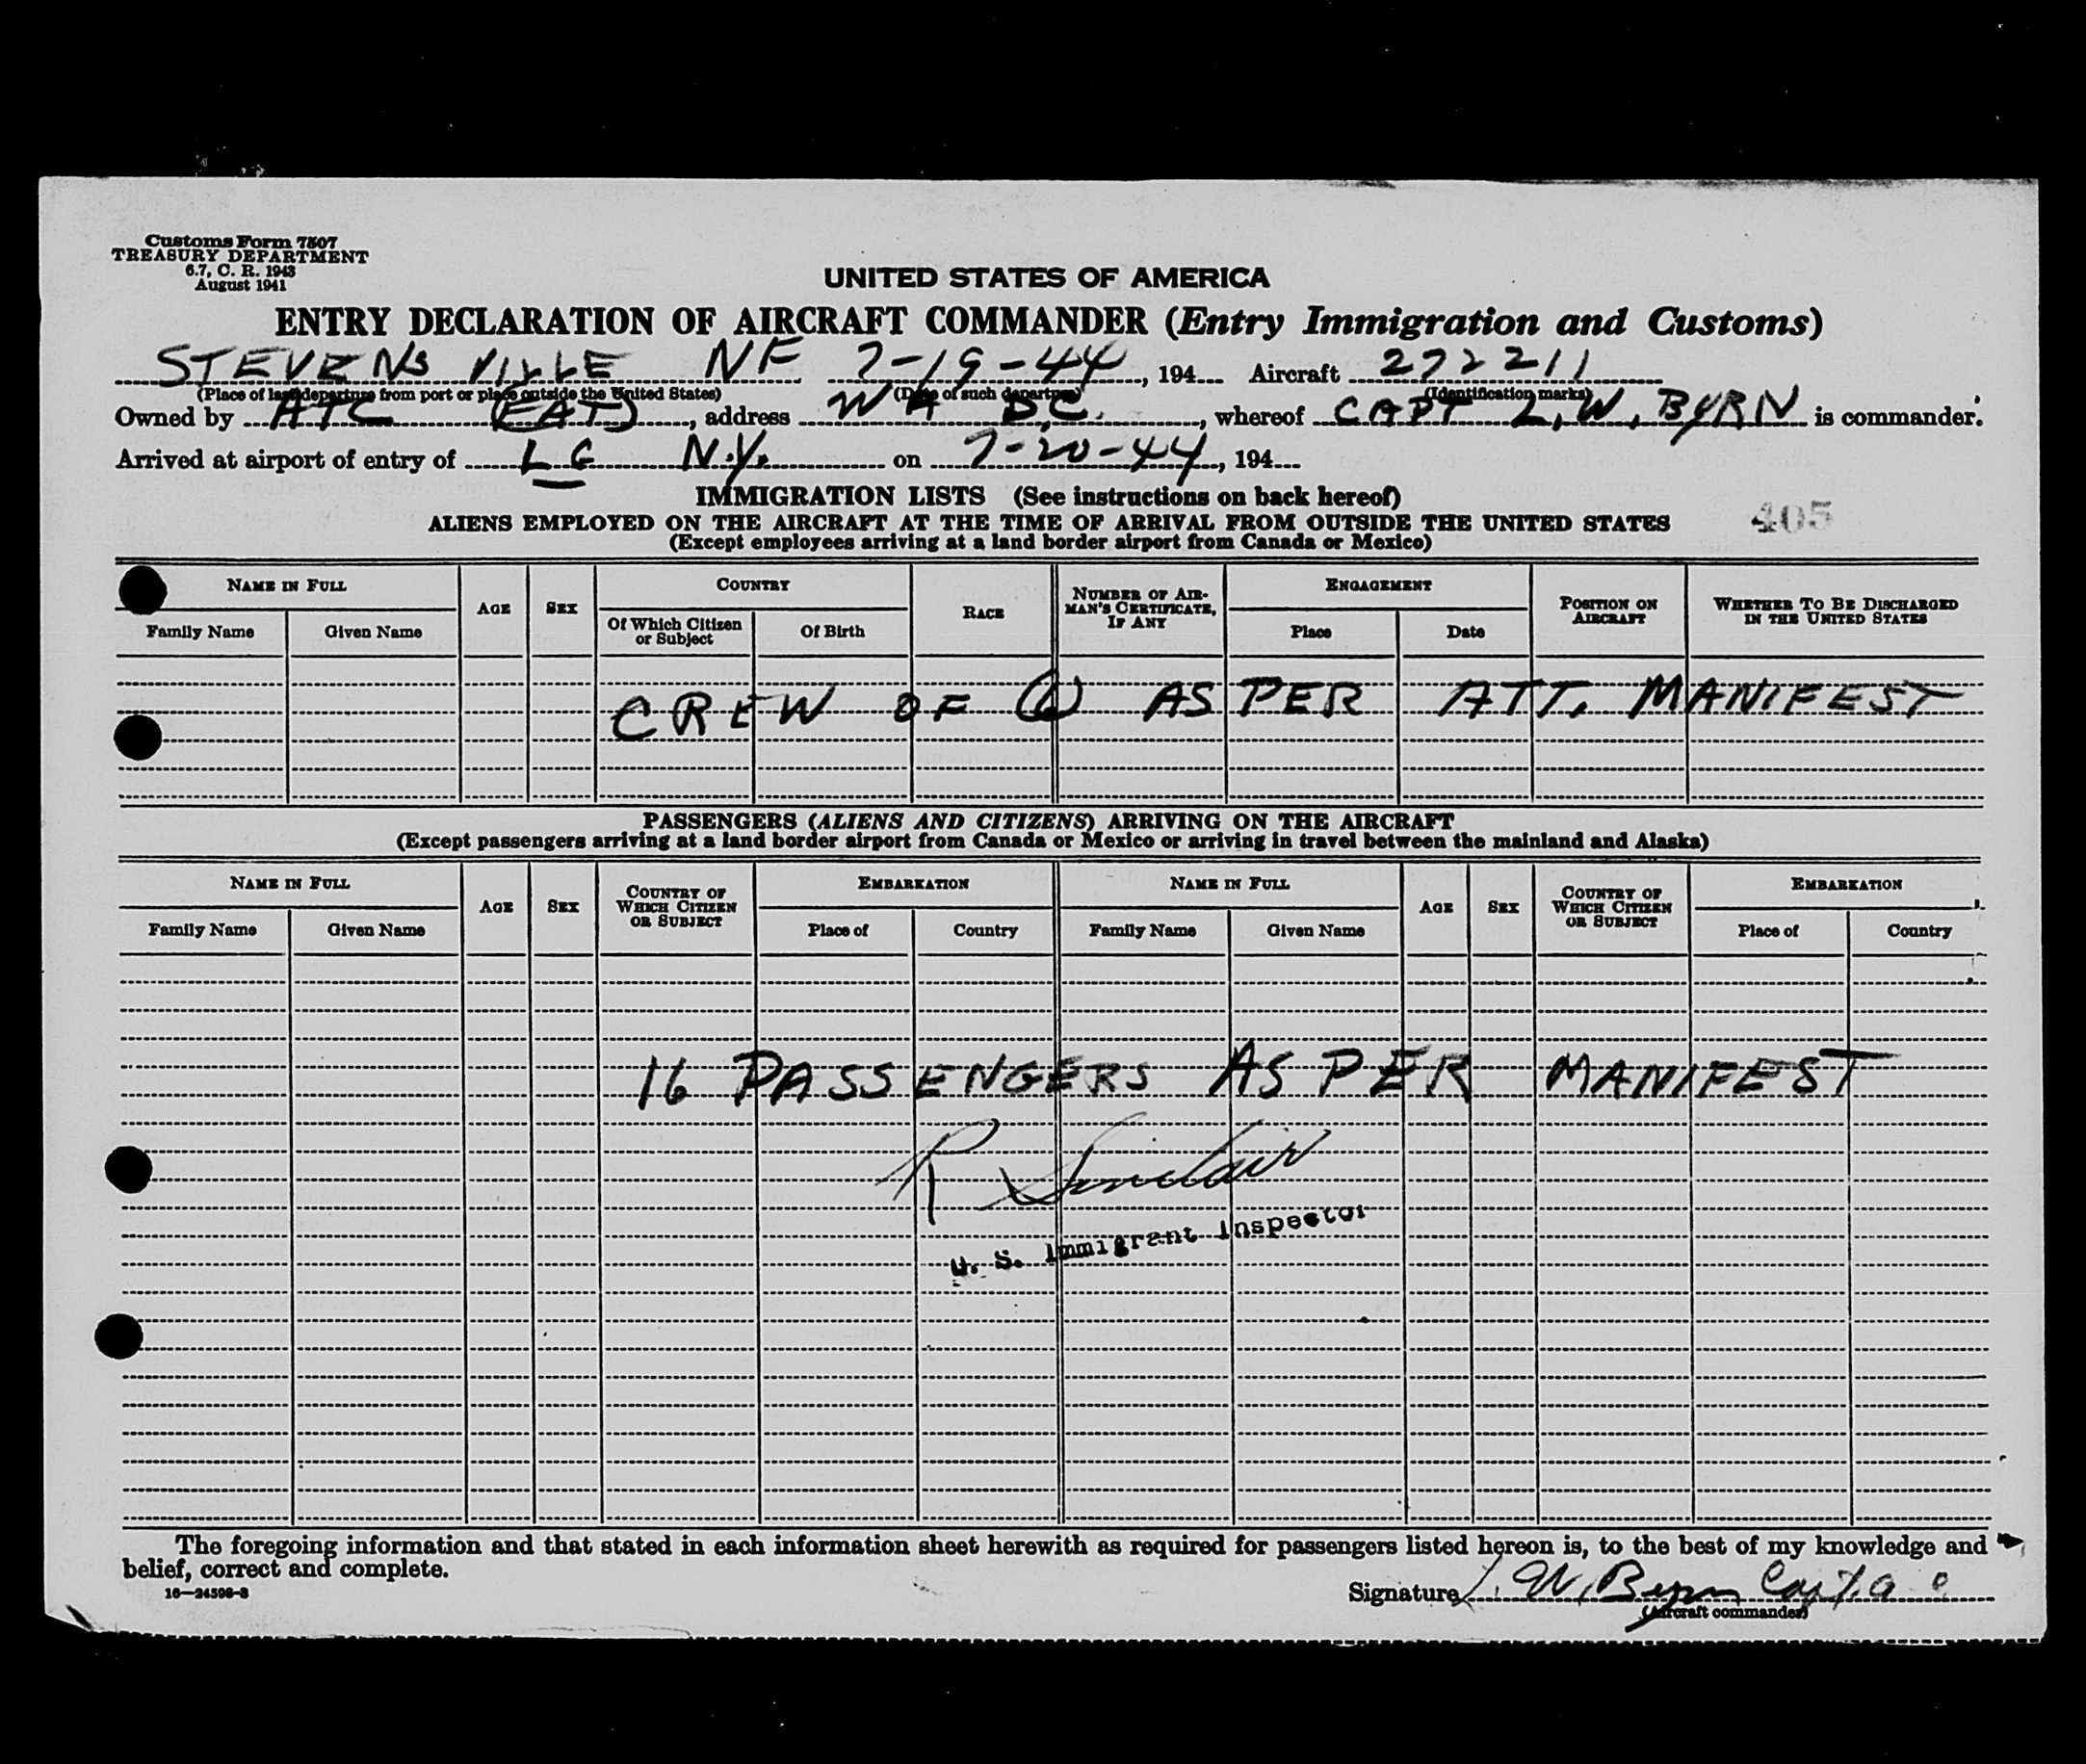 Customs Form 7507
TREASURY DEPARTMENT
6.7, C. R. 1943
August 1941
UNITED STATES OF AMERICA
ENTRY DECLARATION OF AIRCRAFT COMMANDER (Entry Immigration and Customs)
STEVENSVILLE NF 7-19-44, 194 Aircraft 272211
(Place of last departure from port or place outside the United States) (Date of such departure) (Identification marks)
Owned by ATC (EAT), address WA DC., whereof CAPT L.W. BYRN is commander.
Arrived at airport of entry of LG N.Y. on 7-20-44, 194
IMMIGRATION LISTS (See instructions on back hereof)
405
ALIENS EMPLOYED ON THE AIRCRAFT AT THE TIME OF ARRIVAL FROM OUTSIDE THE UNITED STATES
(Except employees arriving at a land border airport from Canada or Mexico)
NAME IN FULL AGE SEX COUNTRY RACE NUMBER OF AIRMAN'S CERTIFICATE, IF ANY ENGAGEMENT POSITION ON AIRCRAFT WHETHER TO BE DISCHARGED IN THE UNITED STATES
Family Name Given Name Of Which Citizen or Subject Of Birth Place Date
CREW OF (6) AS PER ATT. MANIFEST
PASSENGERS (ALIENS AND CITIZENS) ARRIVING ON THE AIRCRAFT
(Except passengers arriving at a land border airport from Canada or Mexico or arriving in travel between the mainland and Alaska)
NAME IN FULL AGE SEX COUNTRY OF WHICH CITIZEN OR SUBJECT EMBARKATION NAME IN FULL AGE SEX COUNTRY OF WHICH CITIZEN OR SUBJECT EMBARKATION
Family Name Given Name Place of Country Family Name Given Name Place of Country
16 PASSENGERS AS PER MANIFEST
R Sinclair
U. S. Immigrant Inspector
The foregoing information and that stated in each information sheet herewith as required for passengers listed hereon is, to the best of my knowledge and
belief, correct and complete.
16—24598-3
Signature L. W. Byrn Capt. A C
(Aircraft commander)